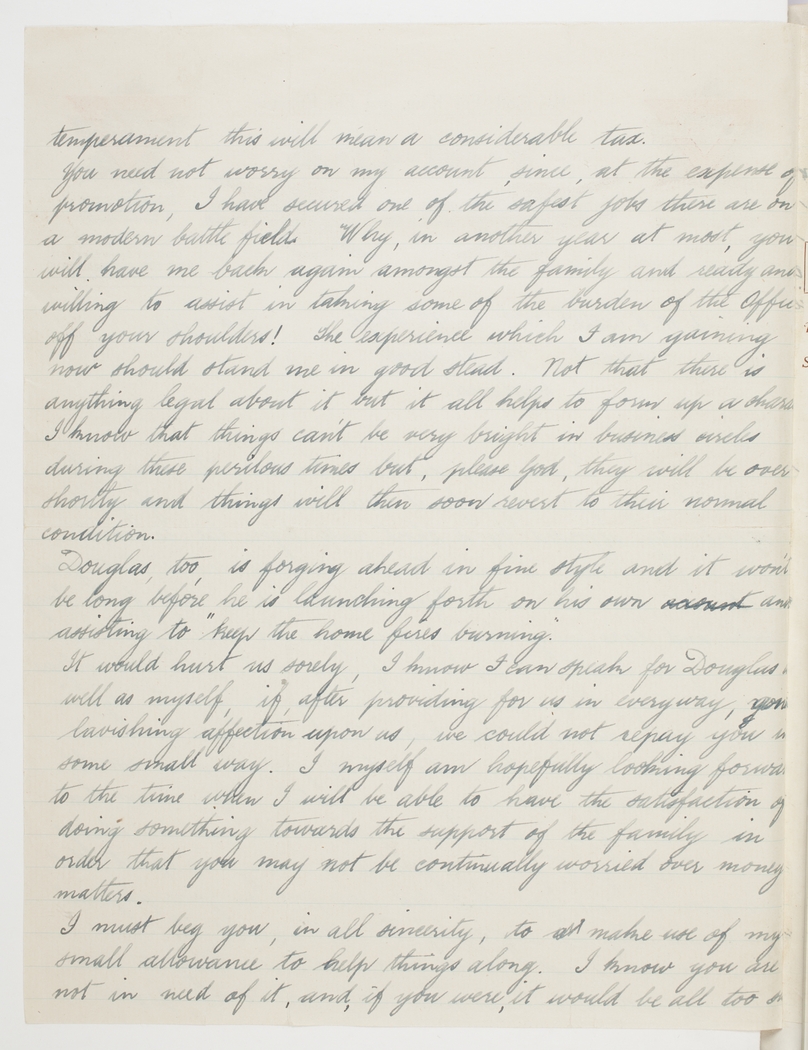 temperament this will mean a considerable tax.
You need not worry on my account, since, at the expense of
promotion, I have secured one of the safest jobs there are on
a modern battle field. Why, in another year at most, you
will have me back again amongst the family and ready and
willing to assist in taking some of the burden of the Office
off your shoulders! The experience which I am gaining
now should stand me in good stead. Not that there is
anything legal about it but it all helps to form up a
I know that things can't be very bright in business circles
during these perilous times but, please God, they will be over
shortly and things will then soon revert to their normal
condition.
Douglas, too, is forging ahead in fine style and it won't
be long before he is launching forth on his own account and
assisting to "keep the home fires burning."
It would hurt us sorely, I know I can speak for Douglas
well as myself, if, after providing for us in everyway,
lavishing affection upon us, we could not repay you in
some small way. I myself am hopefully looking forwa
to the time when I will be able to have the satisfaction of
doing something towards the support of the family in
order that you may not be continually worried over money
matters.
I must beg you, in all sincerity, to make use of my
small allowance to help things along. I know you are
not in need of it, and, if you were, it would be all too